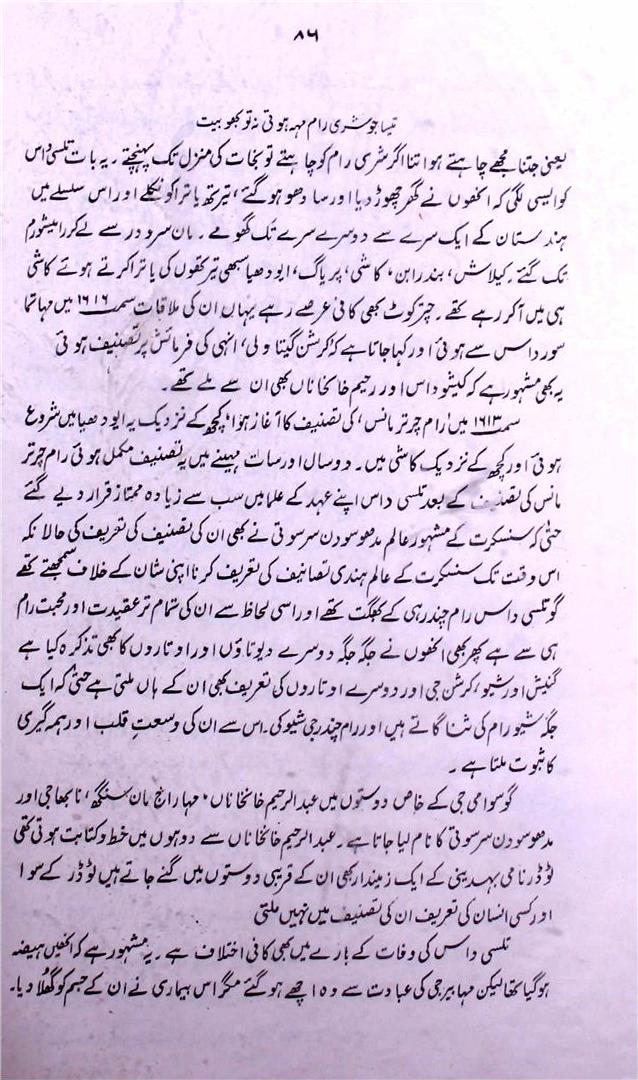 ۸۶
تیسا جو شری رام مہہ ہوتی نہ تو بھو بیت
یعنی جتنا مجھے چاہتے ہو اتنا اگر شری رام کو چاہتے تو نجات کی منزل تک پہنچتے ۔ یہ بات تلسی داس
کو ایسی لگی کہ انھوں نے گھر چھوڑ دیا اور سادھو ہو گئے ، تیرتھ یاترا کو نکلے اور اس سلسلے میں
ہندستان کے ایک سرے سے دوسرے سرے تک گھومے ۔ مان سرودر سے لے کر رامیشورم
تک گئے ۔ کیلاش ، بندرابن ، کاشی ، پریاگ ، ایودھیا سبھی تیرتھوں کی یاترا کرتے ہوئے کاشی
ہی میں آ کر رہے تھے ۔ چترکوٹ بھی کافی عرصے رہے یہاں ان کی ملاقات سمت ۱۶۱۶ میں مہاتما
سور داس سے ہوئی اور کہا جاتا ہے کہ 'کرشن گیتاولی' انہی کی فرمائش پر تصنیف ہوئی
یہ بھی مشہور ہے کہ کیشو داس اور رحیم خانخاناں بھی ان سے ملے تھے ۔
سمت ۱۶۱۳ میں 'رام چرتر مانس' کی تصنیف کا آغاز ہوا ، کچھ کے نزدیک یہ ایودھیا میں شروع
ہوئی اور کچھ کے نزدیک کاشی میں ۔ دو سال اور سات مہینے میں یہ تصنیف مکمل ہوئی رام چرتر
مانس کی تصنیف کے بعد تلسی داس اپنے عہد کے علما میں سب سے زیادہ ممتاز قرار دیے گئے
حتیٰ کہ سنسکرت کے مشہور عالم مدھوسودن سرسوتی نے بھی ان کی تصنیف کی تعریف کی حالانکہ
اس وقت تک سنسکرت کے عالم ہندی تصانیف کی تعریف کرنا اپنی شان کے خلاف سمجھتے تھے
گو تلسی داس رام چندر ہی کے بھگت تھے اور اسی لحاظ سے ان کی تمام تر عقیدت اور محبت رام
ہی سے ہے پھر بھی انھوں نے جگہ جگہ دوسرے دیوتاؤں اور اوتاروں کا بھی تذکرہ کیا ہے
گنیش اور شیو ، کرشن جی اور دوسرے اوتاروں کی تعریف بھی ان کے ہاں ملتی ہے حتیٰ کہ ایک
جگہ شیو رام کی ثنا گاتے ہیں اور رام چندر جی شیو کی ۔ اس سے ان کی وسعتِ قلب اور ہمہ گیری
کا ثبوت ملتا ہے ۔
گوسوامی جی کے خاص دوستوں میں عبدالرحیم خانخاناں ، مہاراج مان سنگھ ، نابھاجی اور
مدھوسودن سرسوتی کا نام لیا جاتا ہے ۔ عبدالرحیم خانخاناں سے دوہوں میں خط و کتابت ہوتی تھی
ٹوڈر نامی بھدینی کے ایک زمیندار بھی ان کے قریبی دوستوں میں گنے جاتے ہیں ٹوڈر کے سوا
اور کسی انسان کی تعریف ان کی تصنیف میں نہیں ملتی
تلسی داس کی وفات کے بارے میں بھی کافی اختلاف ہے ۔ یہ مشہور ہے کہ انھیں ہیضہ
ہو گیا تھا لیکن مہابیر جی کی عبادت سے وہ اچھے ہو گئے مگر اس بیماری نے ان کے جسم کو گھلا دیا ۔